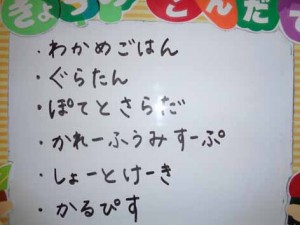 きょうのこんだて
・わかめごはん
・ぐらたん
・ぽてとさらだ
・かれーふうみすーぷ
・しょーとけーき
・かるぴす